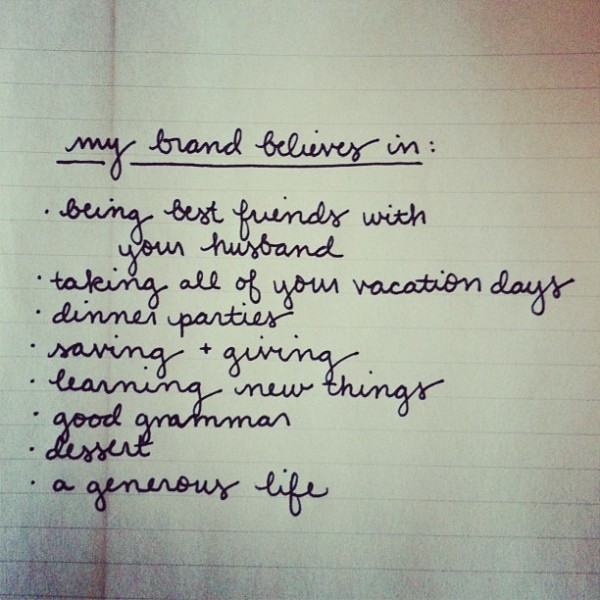 my brand believes in:
· being best friends with
your husband
· taking all of your vacation days
· dinner parties
· saving + giving
· learning new things
· good grammar
· dessert
· a generous life